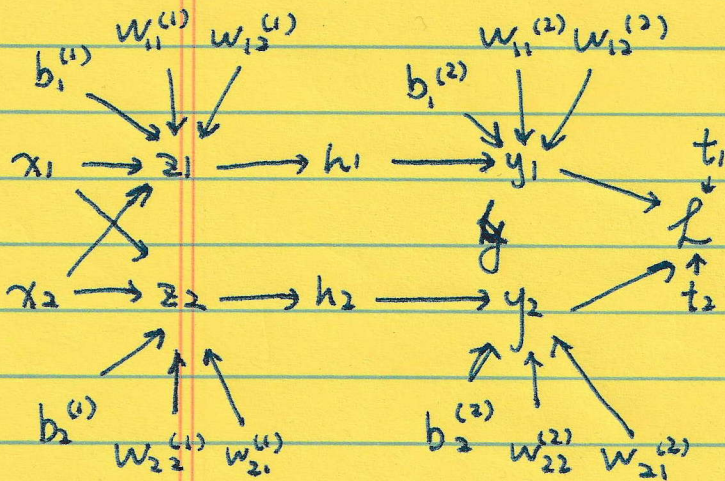 b₁⁽¹⁾ w₁₁⁽¹⁾ w₁₂⁽¹⁾ b₁⁽²⁾ w₁₁⁽²⁾ w₁₂⁽²⁾
x₁ → z₁ → h₁ → y₁ t₁
y ℒ
x₂ → z₂ → h₂ → y₂ t₂
b₂⁽¹⁾ w₂₂⁽¹⁾ w₂₁⁽¹⁾ b₂⁽²⁾ w₂₂⁽²⁾ w₂₁⁽²⁾